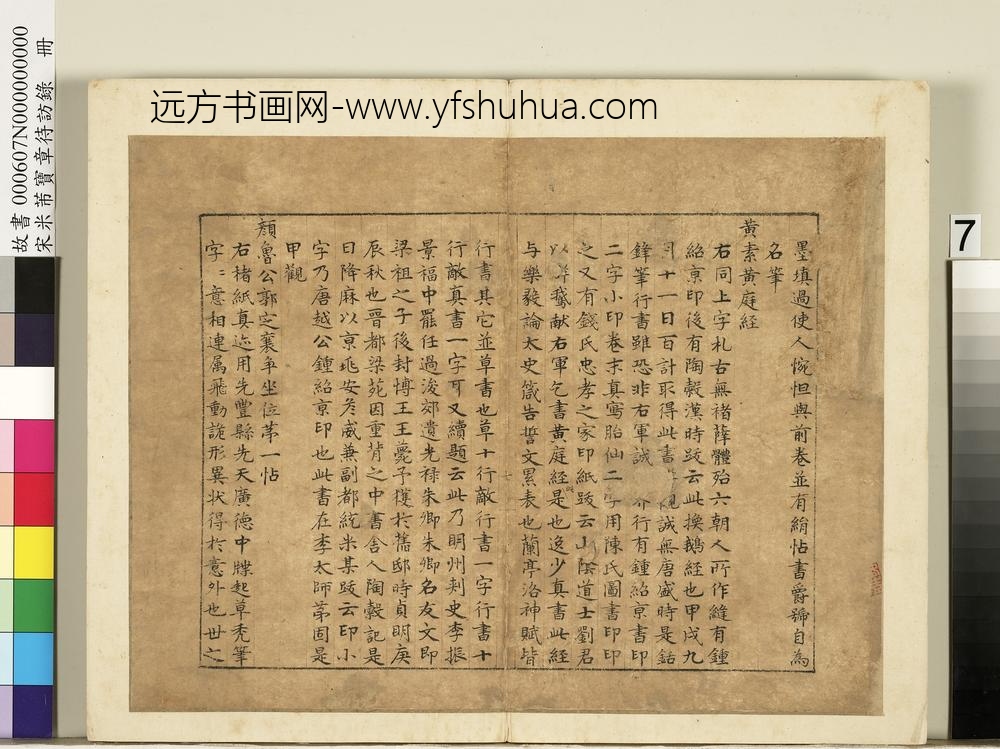 远方书画网-www.yfshuhua.com
故書000607N000000000
宋米芾寶章待訪錄 冊
7
墨填過使人惋怛與前卷並有絹帖書爵號自為
名筆
黃素黃庭經
右同上字札古無褚薛體殆六朝人所作縫有鍾
紹京印後有陶糓漢時跋云此換鵝經也甲戌九
月十一日百計取得此書 誠無唐盛時是銛
鋒筆行書雖恐非右軍誠 行有鍾紹京書印
二字小印卷末真寫胎仙二字用陳氏圖書印印
之又有錢氏忠孝之家印紙跋云山陰道士劉君
以群鵝献右軍乞書黃庭經是也逸少真書此經
与樂毅論太史箴告誓文累表也蘭亭洛神賦皆
行書其它並草書也草十行敵行書一字行書十
行敵真書一字可又續題云此乃明州刺史李振
景福中罷任過浚郊遺光禄朱卿朱卿名友文即
梁祖之子後封博王王薨予獲於舊邸時貞明庚
辰秋也晋都梁苑因重背之中書舍人陶糓記是
日降麻以京兆安彥威兼副都統米某跋云印小
字乃唐越公鍾紹京印也此書在李太師第固是
甲觀
顏魯公郭定襄争坐位第一帖
右楮紙真迹用先豐縣先天廣德中牒起草秃筆
字〻意相連属飛動詭形異状得於意外也世之